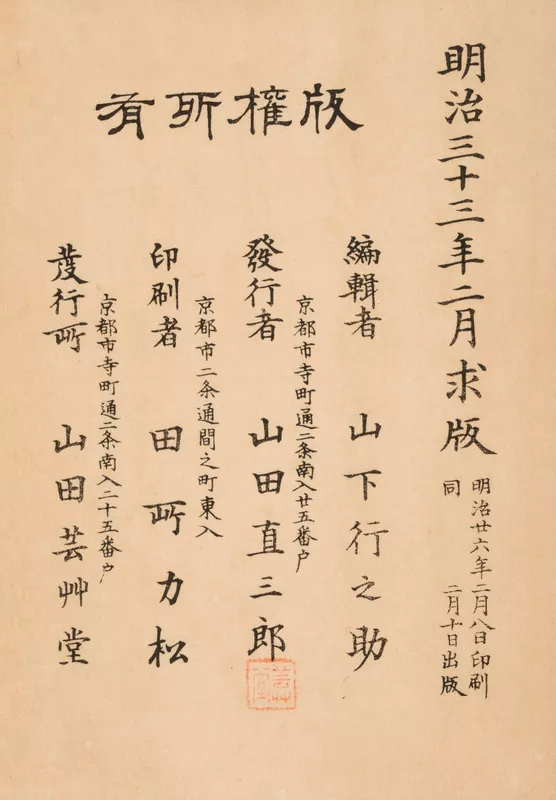 明治三十三年二月求版
明治廿六年二月八日印刷
同 二月十日出版
版權所有
編輯者 山下行之助
京都市寺町通二条南入廿五番戸
發行者 山田直三郎
京都市二条通間之町東入
印刷者 田所力松
京都市寺町通二条南入二十五番戸
發行所 山田芸艸堂